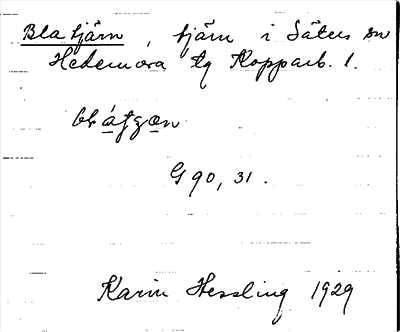 Bla tjärn, tjärn i Säters sn
Hedemora tg Kopparb. l.
G 90, 31.
Karin Hessling 1929